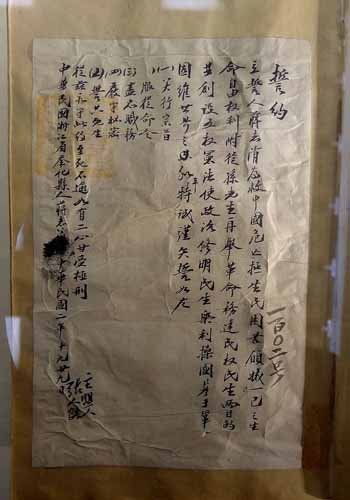 誓約
立誓人蔣志清為救中國危亡拯生民困苦願犧一己之生
命自由權利附從孫先生再舉革命務達民權民生兩目的
並創設五權憲法使政治修明民生樂利措國基於鞏
固維世界之和平特誠謹矢誓如左
(一)實行宗旨
服從命令
(三)盡忠職務
(四)嚴守秘密
(五)誓共生死
從茲永守此約至死不渝如有二心甘受極刑
中華民國浙江省奉化縣人蔣志
中華民國二年十月廿九日
主盟人
一百〇二号